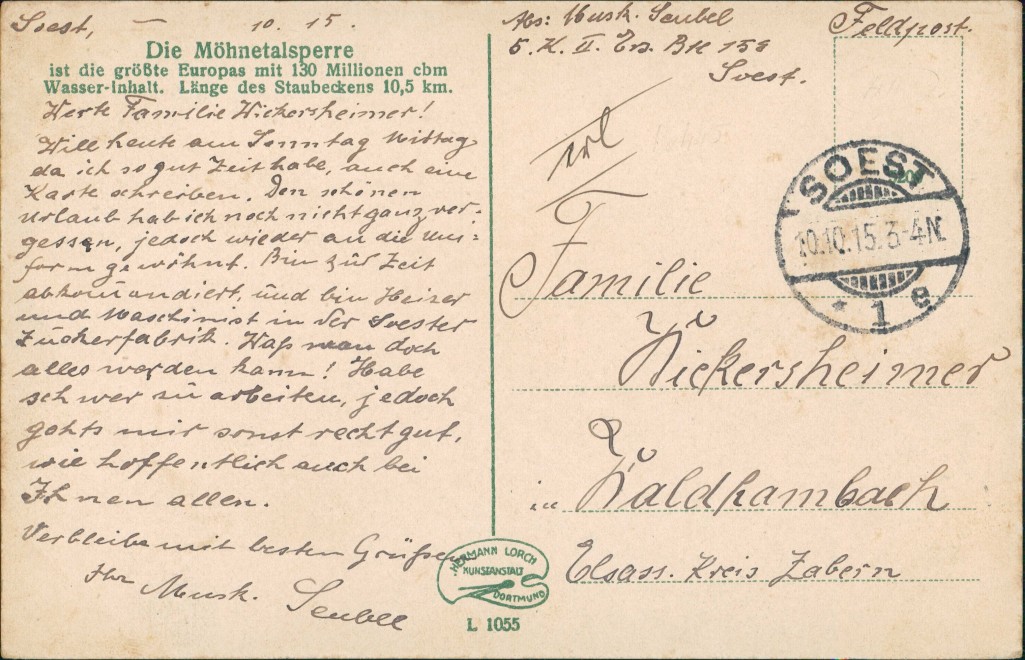 Soest, — 10. 15.
Die Möhnetalsperre
ist die größte Europas mit 130 Millionen cbm
Wasser-Inhalt. Länge des Staubeckens 10,5 km.
Werte Familie Wickersheimer!
Will heute am Sonntag Mittag
da ich so gut Zeit habe, auch eine
Karte schreiben. Den schönen
Urlaub hab ich noch nicht ganz ver-
gessen, jedoch wieder an die Uni-
form gewöhnt. Bin zur Zeit
abkommandiert, und bin Heizer
und Maschinist in der Soester
Zuckerfabrik. Waß man doch
alles werden kann! Habe
schwer zu arbeiten, jedoch
gehts mir sonst recht gut,
wie hoffentlich auch bei
Ihnen allen.
Verbleibe mit besten Grüßen
Ihr Musk. Seubel
Abs: Musk. Seubel
5. K. II. Ers. Btl 159
Soest.
Feldpost.
SOEST
10.10.15.3-4N.
* 1 e
Familie
Wickersheimer
in Waldhambach
Elsass. Kreis Zabern
HERMANN LORCH
KUNSTANSTALT
DORTMUND
L 1055